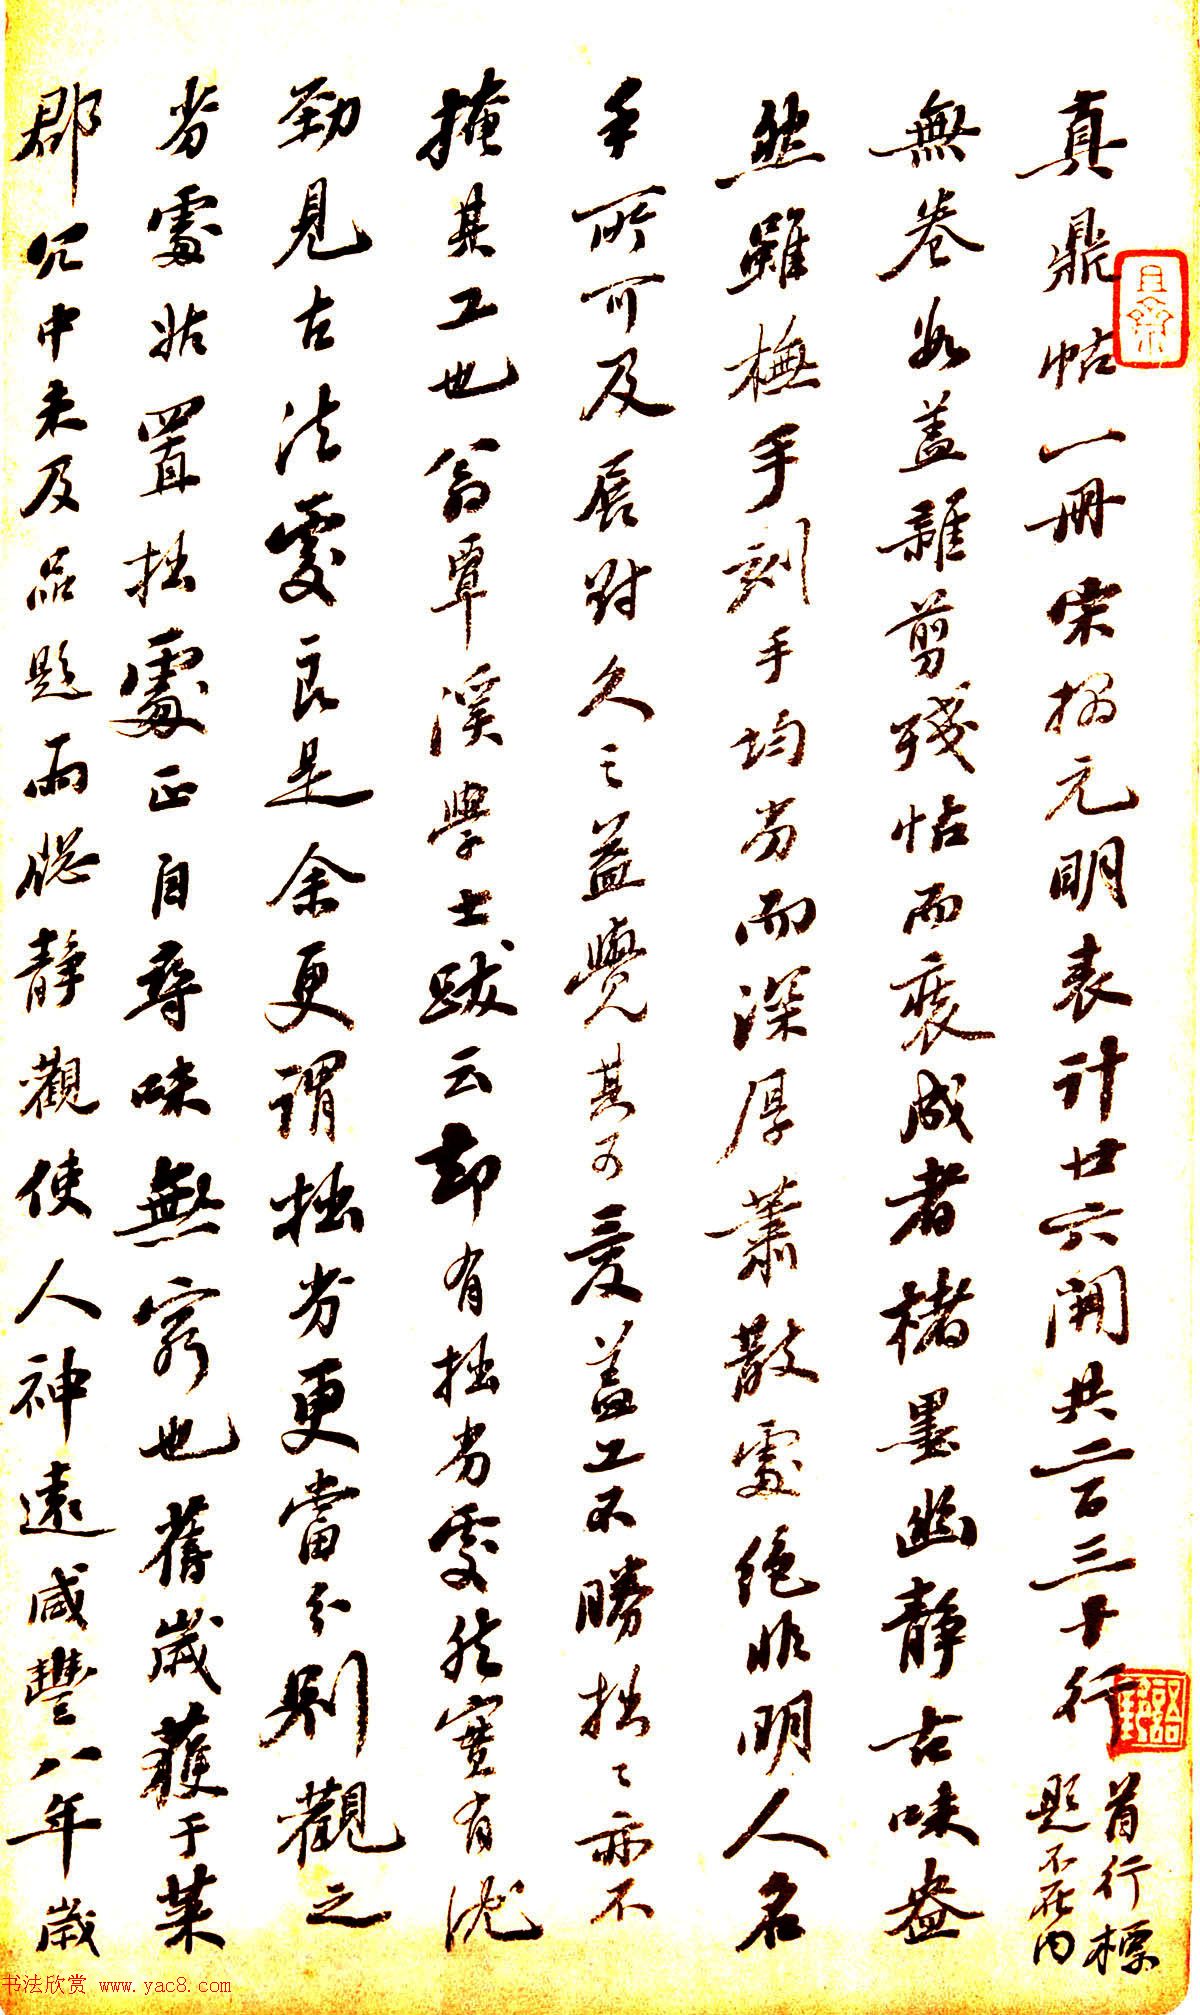 真鼎帖一冊宋搨元明表計廿六開共二百三十行首行標題不在內
無卷數蓋雜剪殘帖而裒成者褚墨幽静古味盎
然雖橅手刻手均劣而深厚蕭散處絶非明人名
手所可及展對久之益覺其可愛蓋工不勝拙々亦不
掩其工也翁覃溪學士跋云却有拙劣處然實有沈
勁見古法處良是余更謂拙劣更當分别觀之
劣處姑置拙處正自尋味無窮也舊歲獲于萊
郡冗中未及品題雨牕静觀使人神遠咸豐八年歲
书法欣赏 www.yac8.com